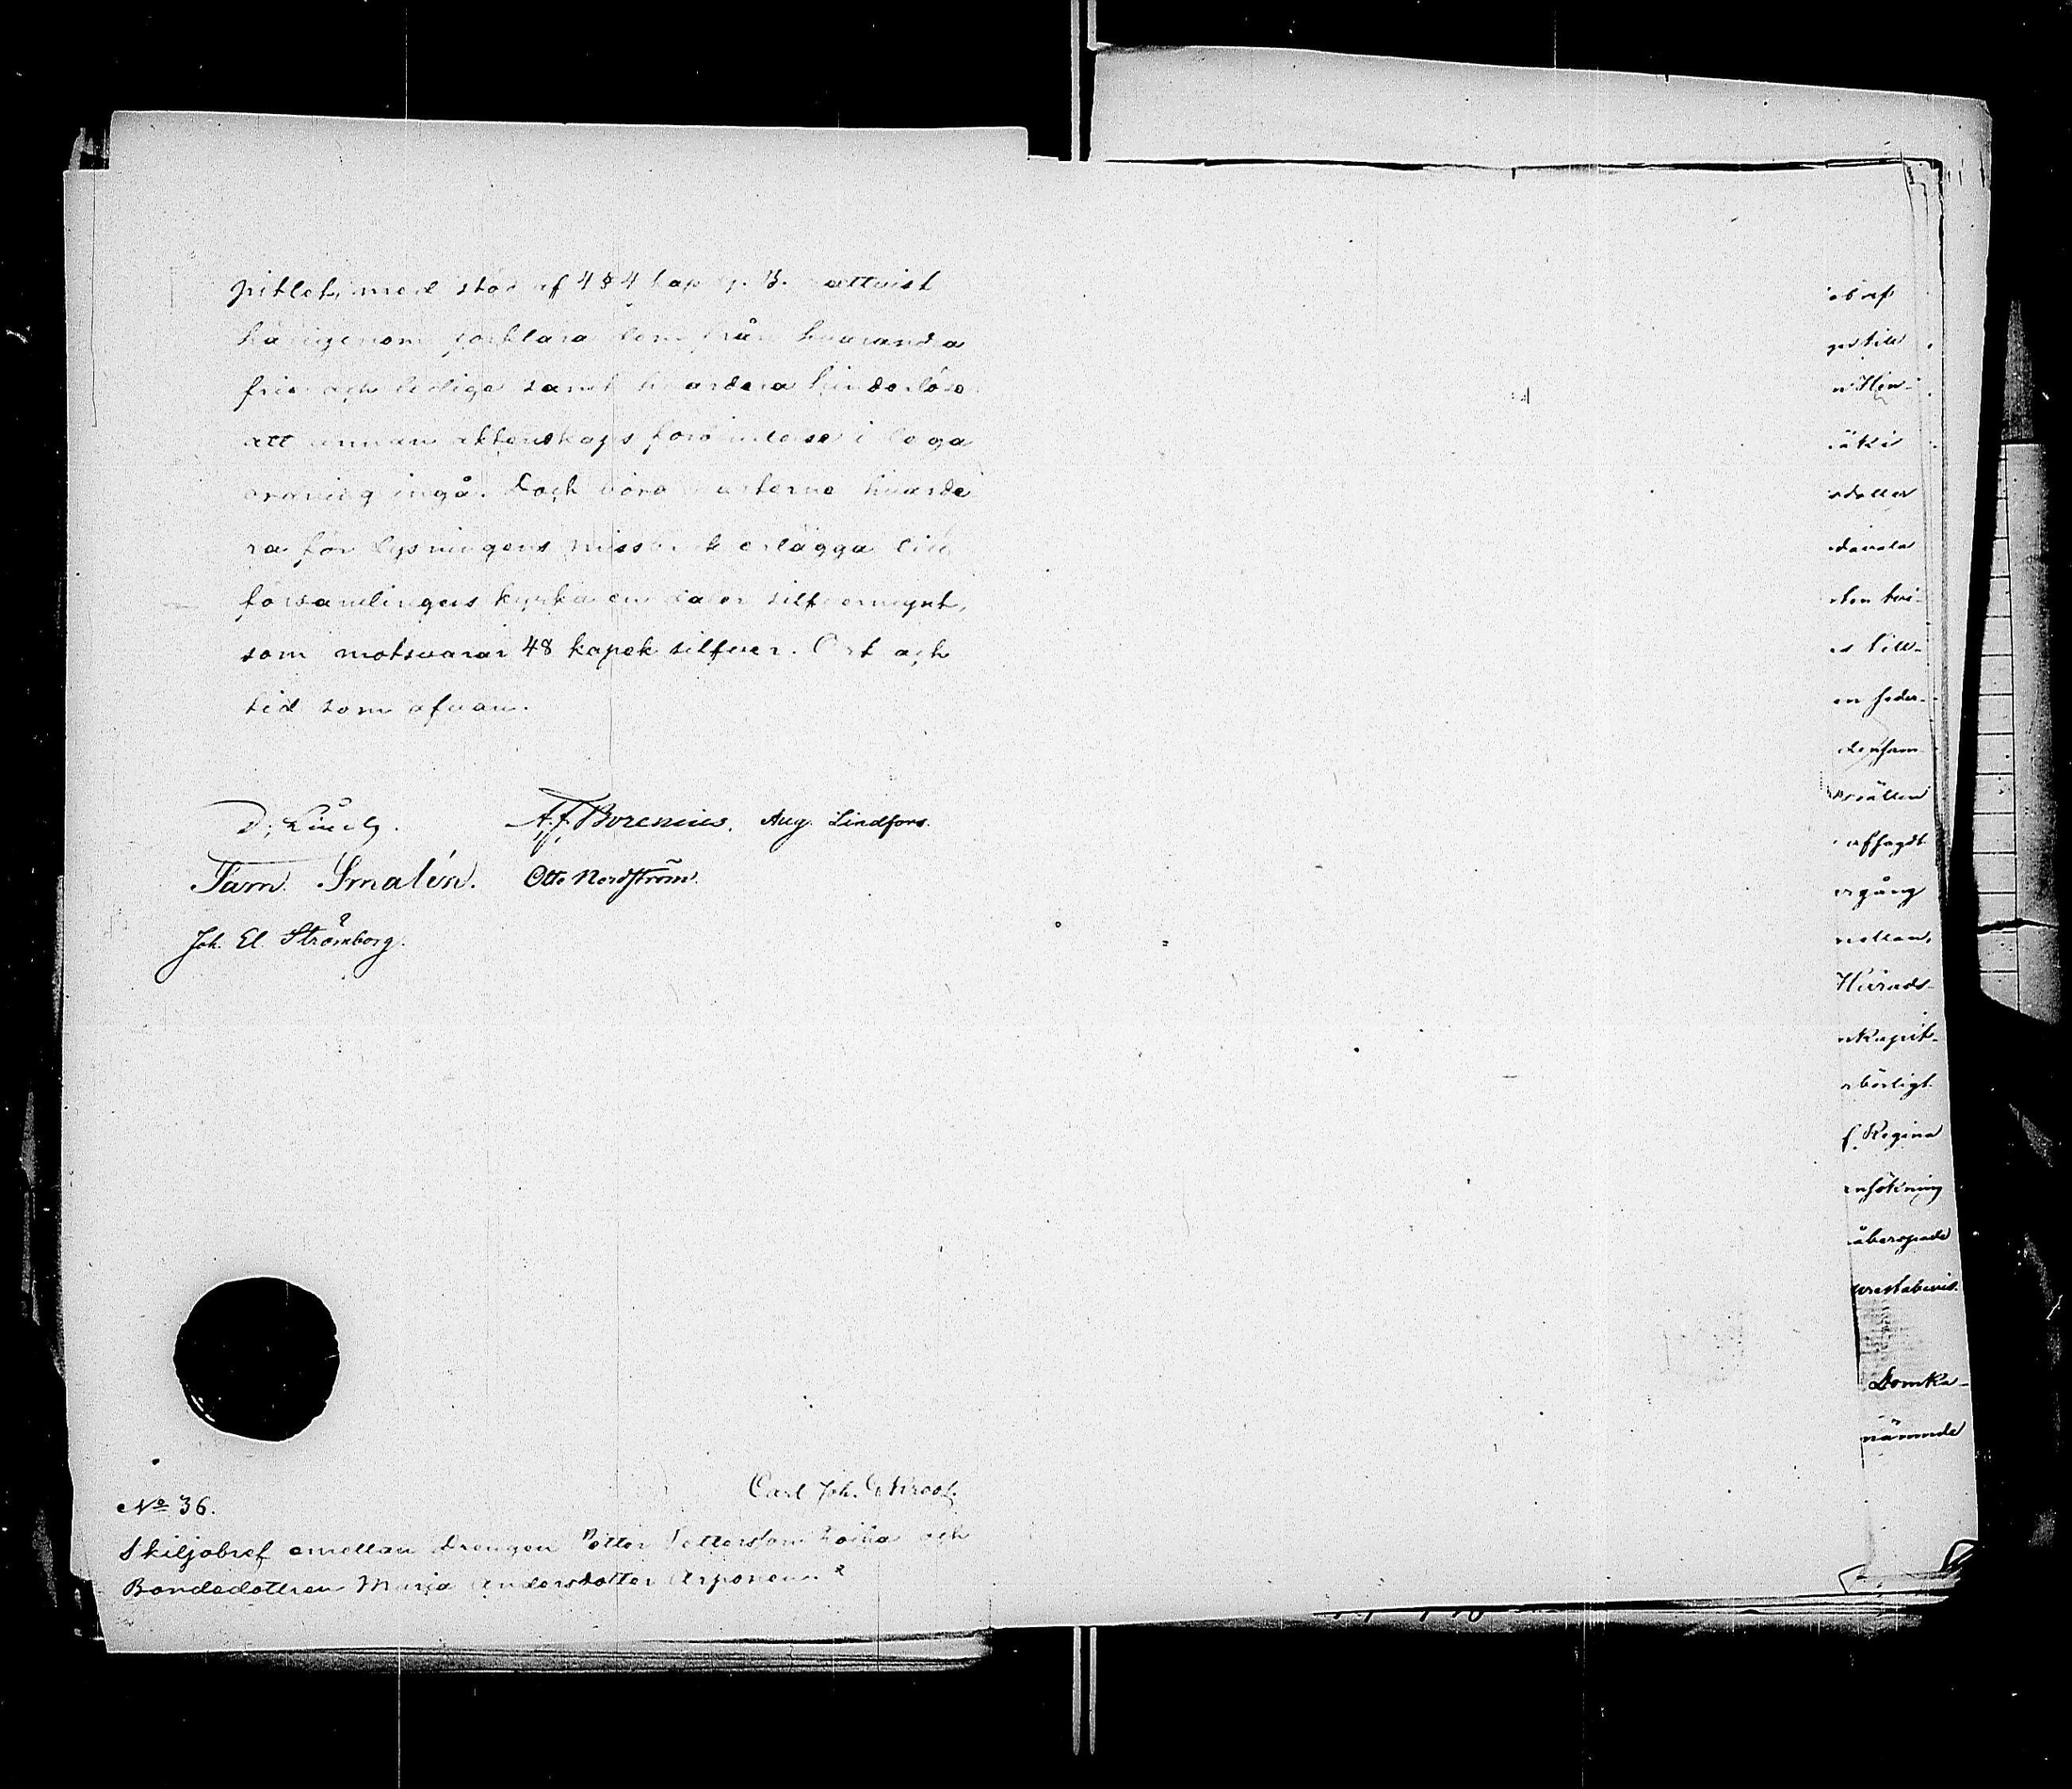 pitlet, med stöd af 4 § 4 kap. G. B. rättvist
härigenom förklara dem från hvarandra
fria och lediga samt hvardera hinderlöse
att annan äktenskaps förbindelse i laga
ordning ingå. Dock böra parterne hvarde
ra för lysningens missbruk erlägga till
församlingens kyrka en daler silfvermynt,
som motsvarar 48 kopek silfver. Ort och
tid som ofvan.
A. F. Borenius. Aug. Lindfors.
Sam. Smalén. Otto Nordström.
Joh. El. Strömborg.
Carl Joh.
No 36.
Skiljobref emellan Drengen Petter Pettersson och
Bondedottren Maria Andersdotter Arponen
obref
ges till
n Hen-
äki
dotter
till-
en förer-
densam-
afsagdt
ergång
mellan,
Härads-
nkapit-
börligt
f. Regina
ansökning
åberopade
Domka-
nämnde